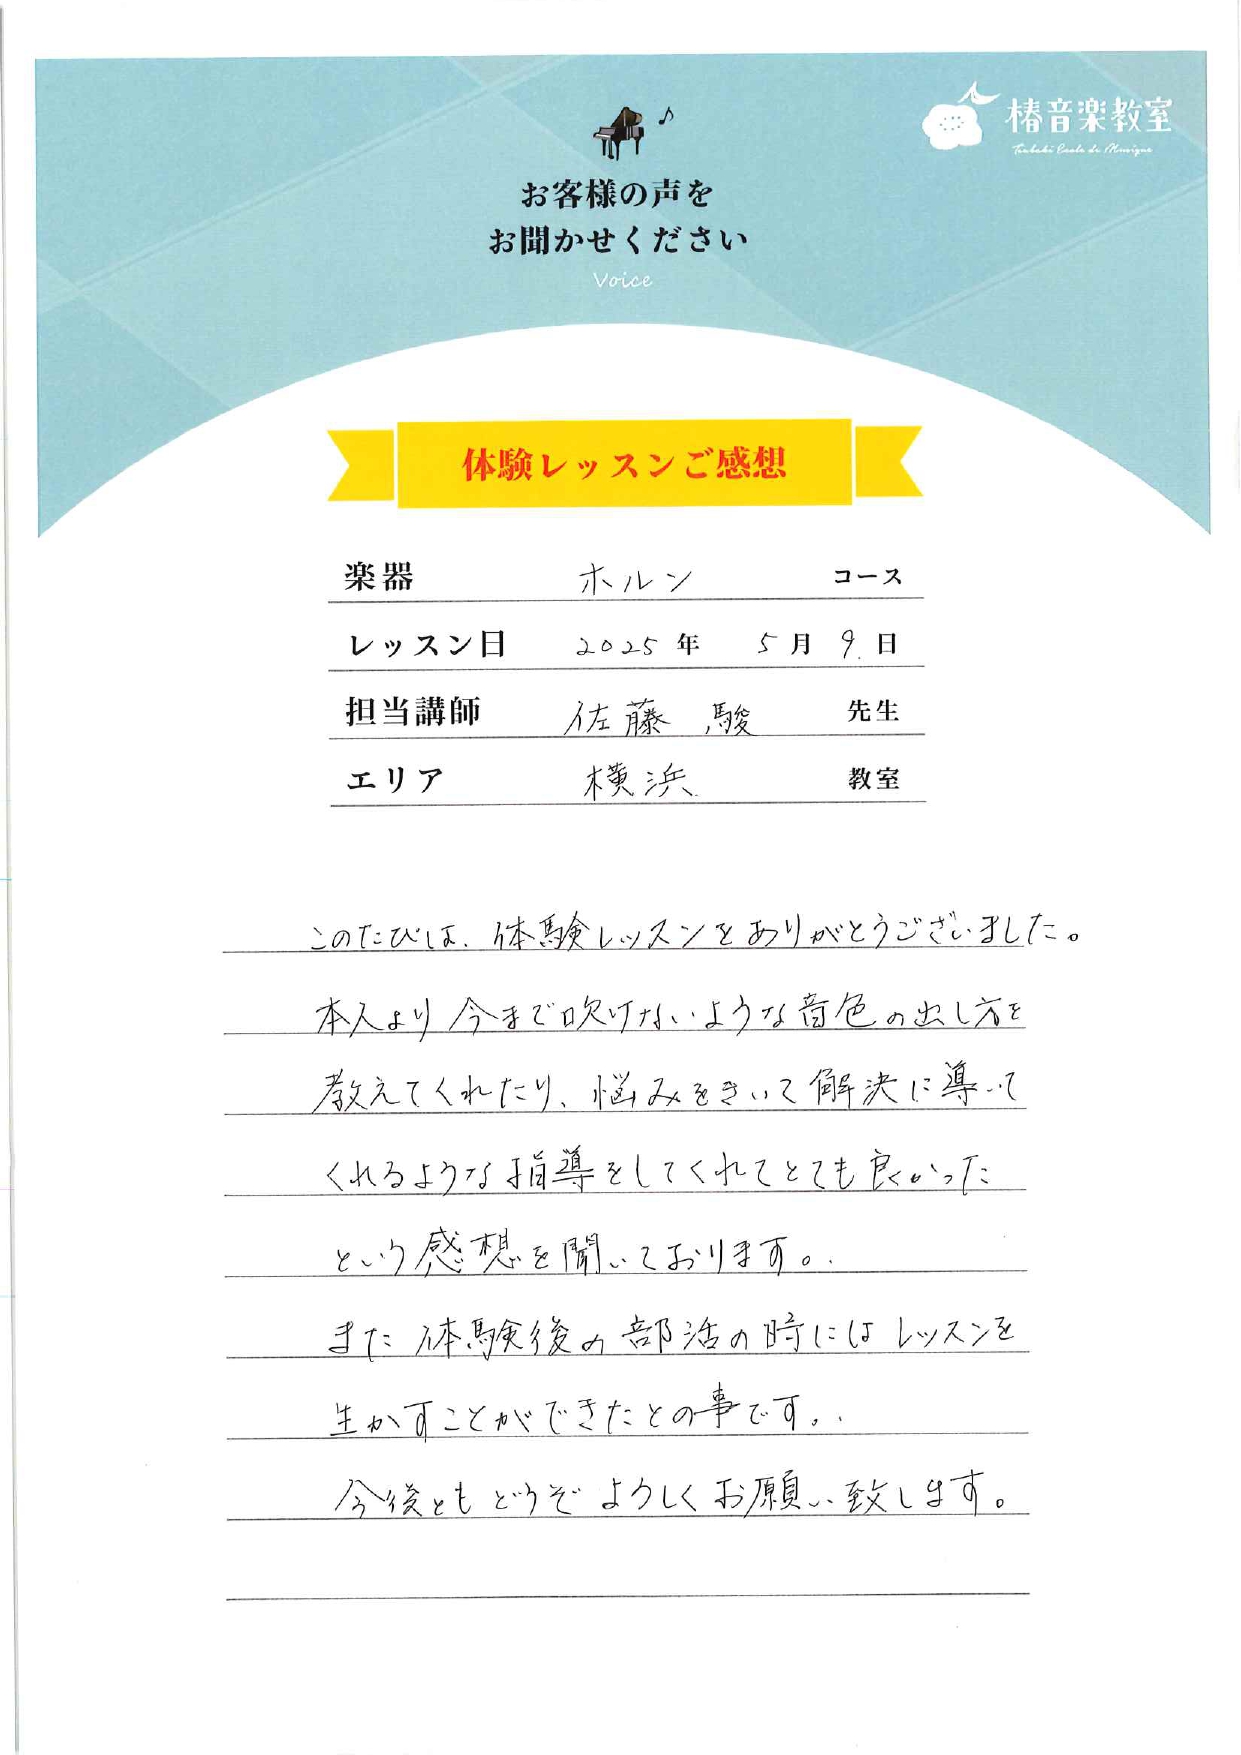 椿音楽教室
Tsubaki Ecole de Musique
お客様の声を
お聞かせください
Voice
体験レッスンご感想
楽器 ホルン コース
レッスン日 2025 年 5 月 9 日
担当講師 佐藤 駿 先生
エリア 横浜 教室
このたびは、体験レッスンをありがとうございました。
本人より今まで吹けないような音色の出し方を
教えてくれたり、悩みをきいて解決に導いて
くれるような指導をしてくれてとても良かった
という感想を聞いております。
また体験後の部活の時にはレッスンを
生かすことができたとの事です。
今後ともどうぞよろしくお願い致します。